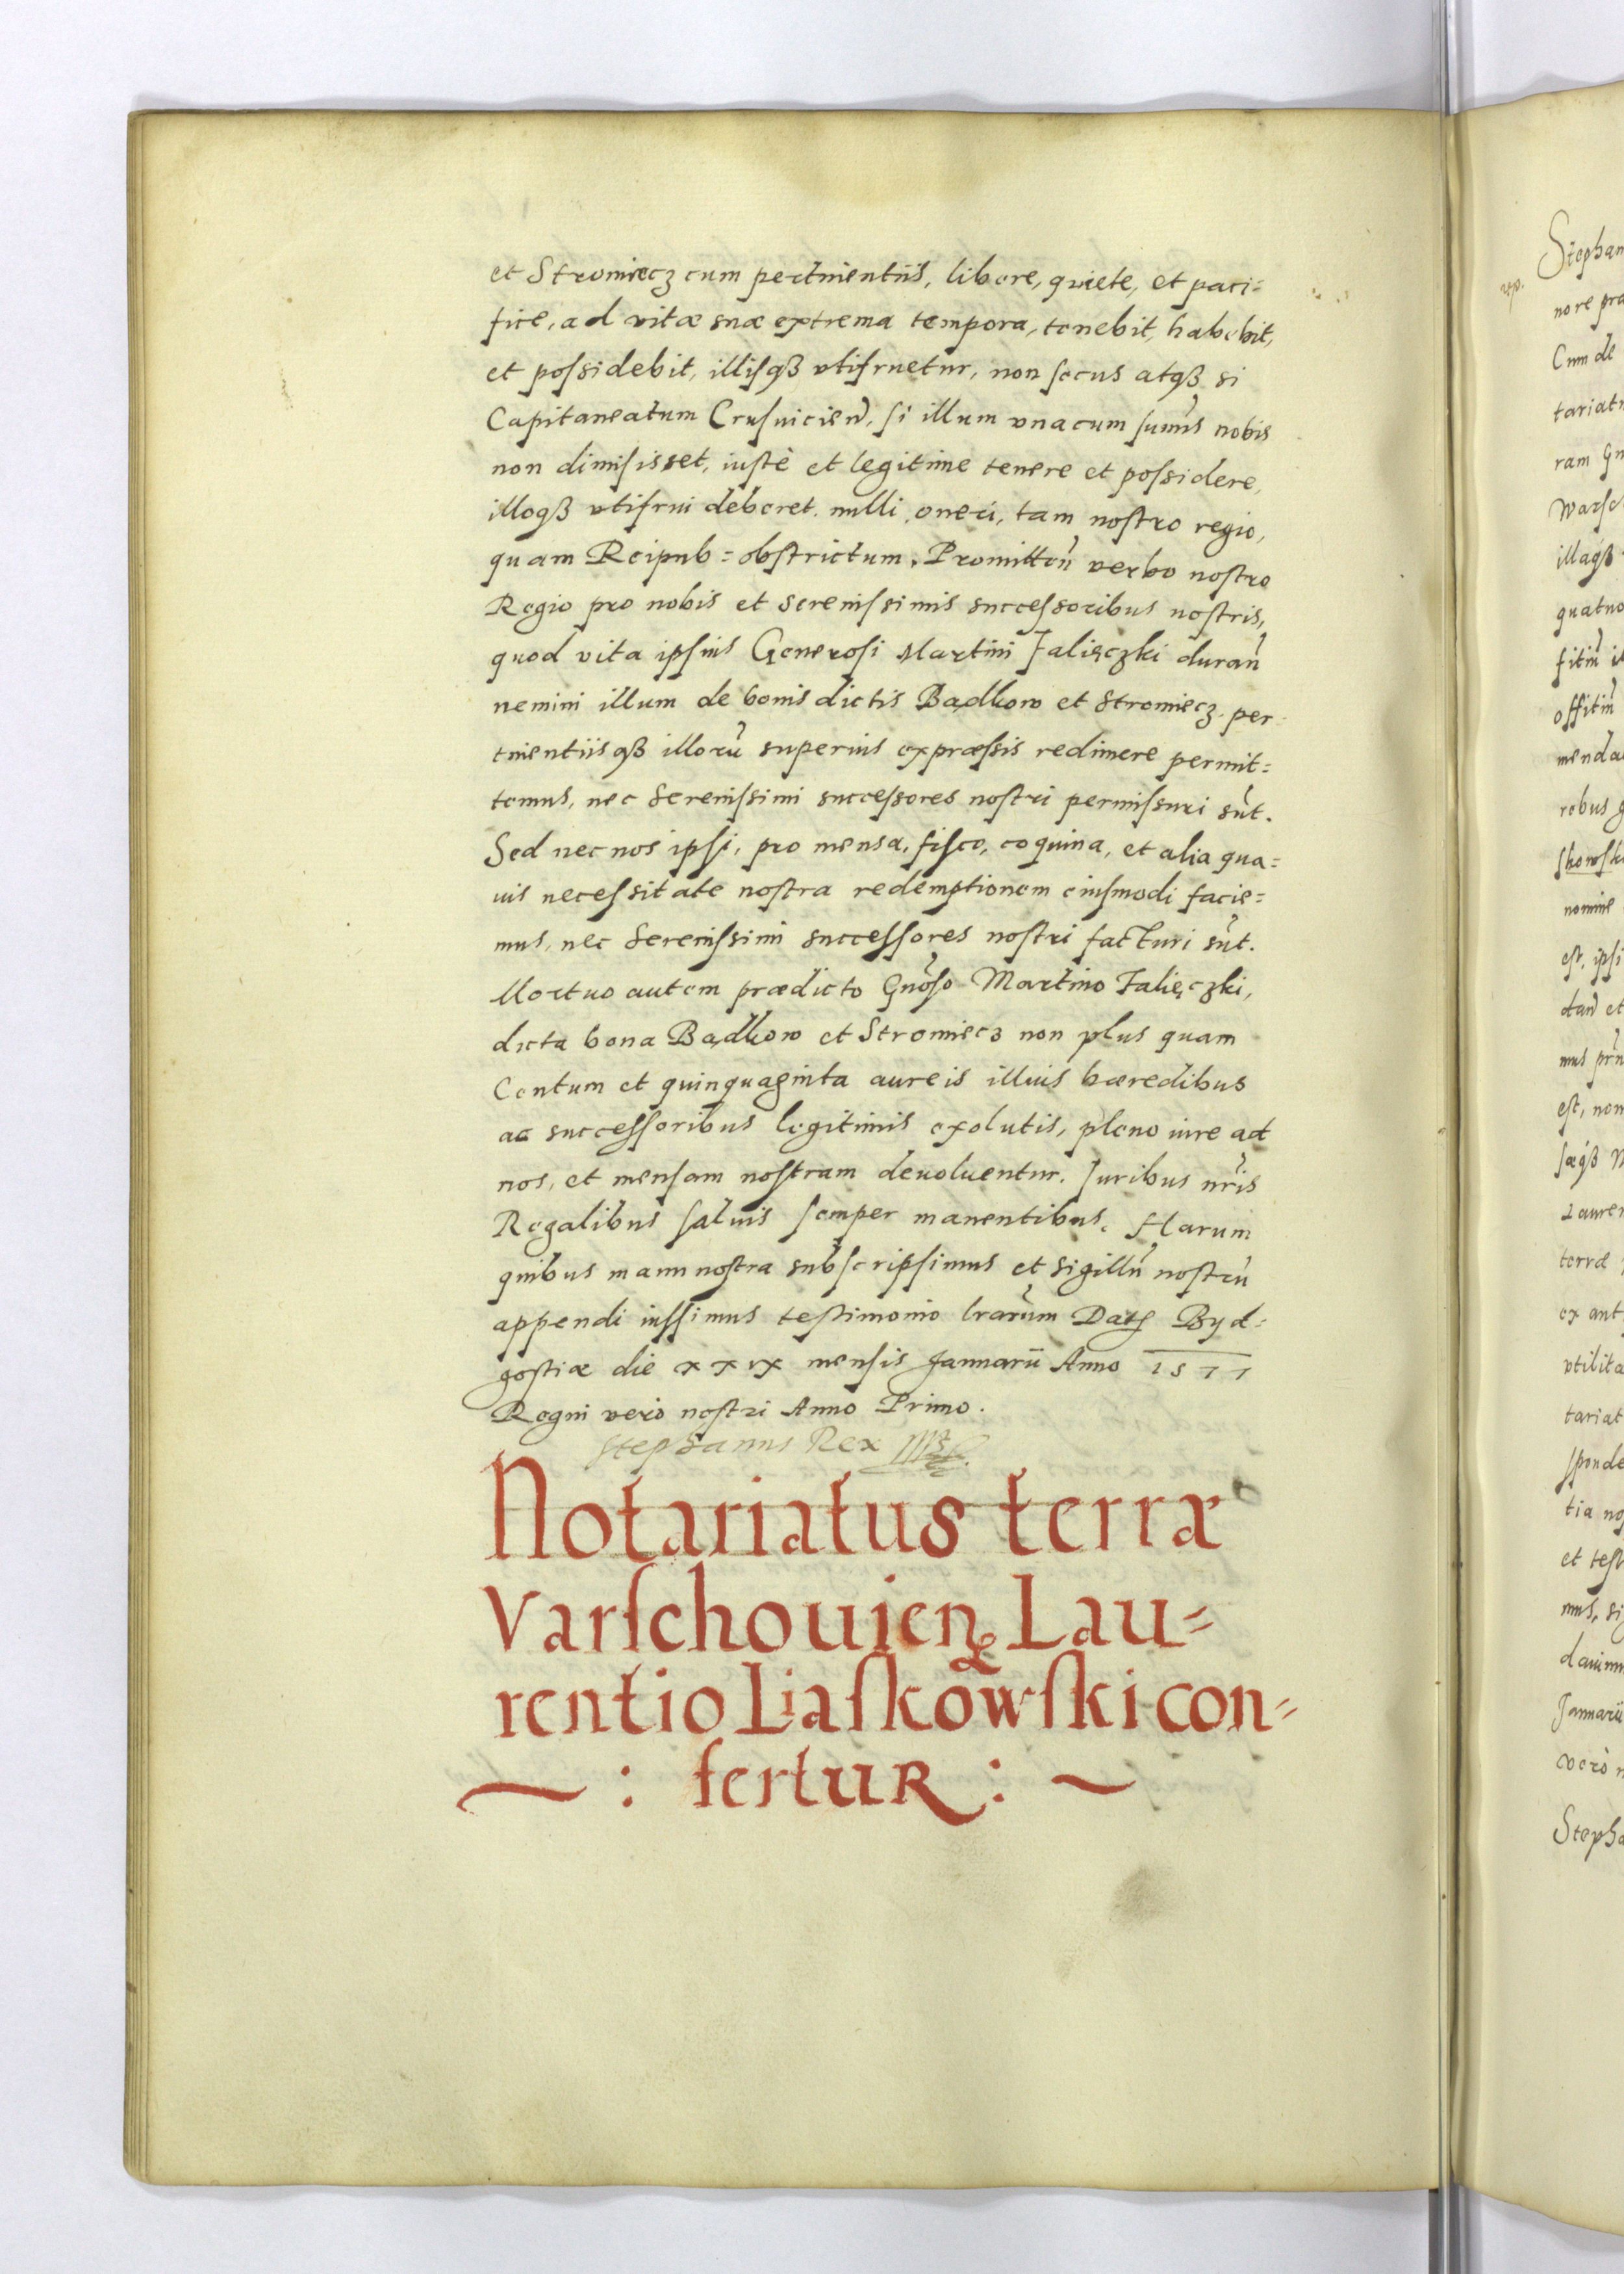 et Stromiecz cum pertinentiis, libere, quiete, et paci=
fice, ad vitæ suæ extrema tempora, tenebit, habebit,
et possidebit, illisqꝫ vtifruetur, non secus atqꝫ si
Capitaneatum Crusuicien̄, si illum vna cum sum̄is nobis
non dimisisset, iustè et legitime tenere et possidere,
illoqꝫ vtifrui deberet. nulli oneri, tam nostro regio,
quam Reipub= obstrictum. Promitten̄ verbo nostro
Regio pro nobis et Serenissimis successoribus nostris,
quod vita ipsius Generosi Martini Falięczki duran̄
nemini illum de bonis dictis Bądkow et Stromiecz. per
tinentiisqꝫ illorū superius expræssis redimere permit=
temus, nec Serenissimi successores nostri permissuri sūt.
Sed nec nos ipsi, pro mensa, fisco, coquina, et alia qua=
uis necessitate nostra redemptionem eiusmodi facie=
mus, nec Serenissimi successores nostri facturi sūt.
Mortuo autem prædicto Gnōso Martino Falięczki,
dicta bona Bądkow et Stromiecz non plus quam
Centum et quinquaginta aureis illius hæredibus
ac successoribus legitimis exolutis, pleno iure ad
nos, et mensam nostram deuoluentur. Iuribus nr̄is
Regalibus saluis semper manentibus. Harum
quibus manu nostra subscripsimus et sigillū nostrū
appendi iussimus testimonio lrārum Datꝭ Byd=
gostiæ die xxıx mensis Januarii Anno 1577
Regni vero nostri Anno Primo.
Stephanus Rex
Notariatus terræ
Varschouien̄ Lau=
rentio Liaskowski con=
~ : fertur : ~
Stephan
nore præ
Cum de
tariat
ram
illaqꝫ
quatuo
rebus
nomine
terræ
ex ant
vtilita
tariat
sponde
tia no
et test
mus, si
Januarii
vero n
Stepha